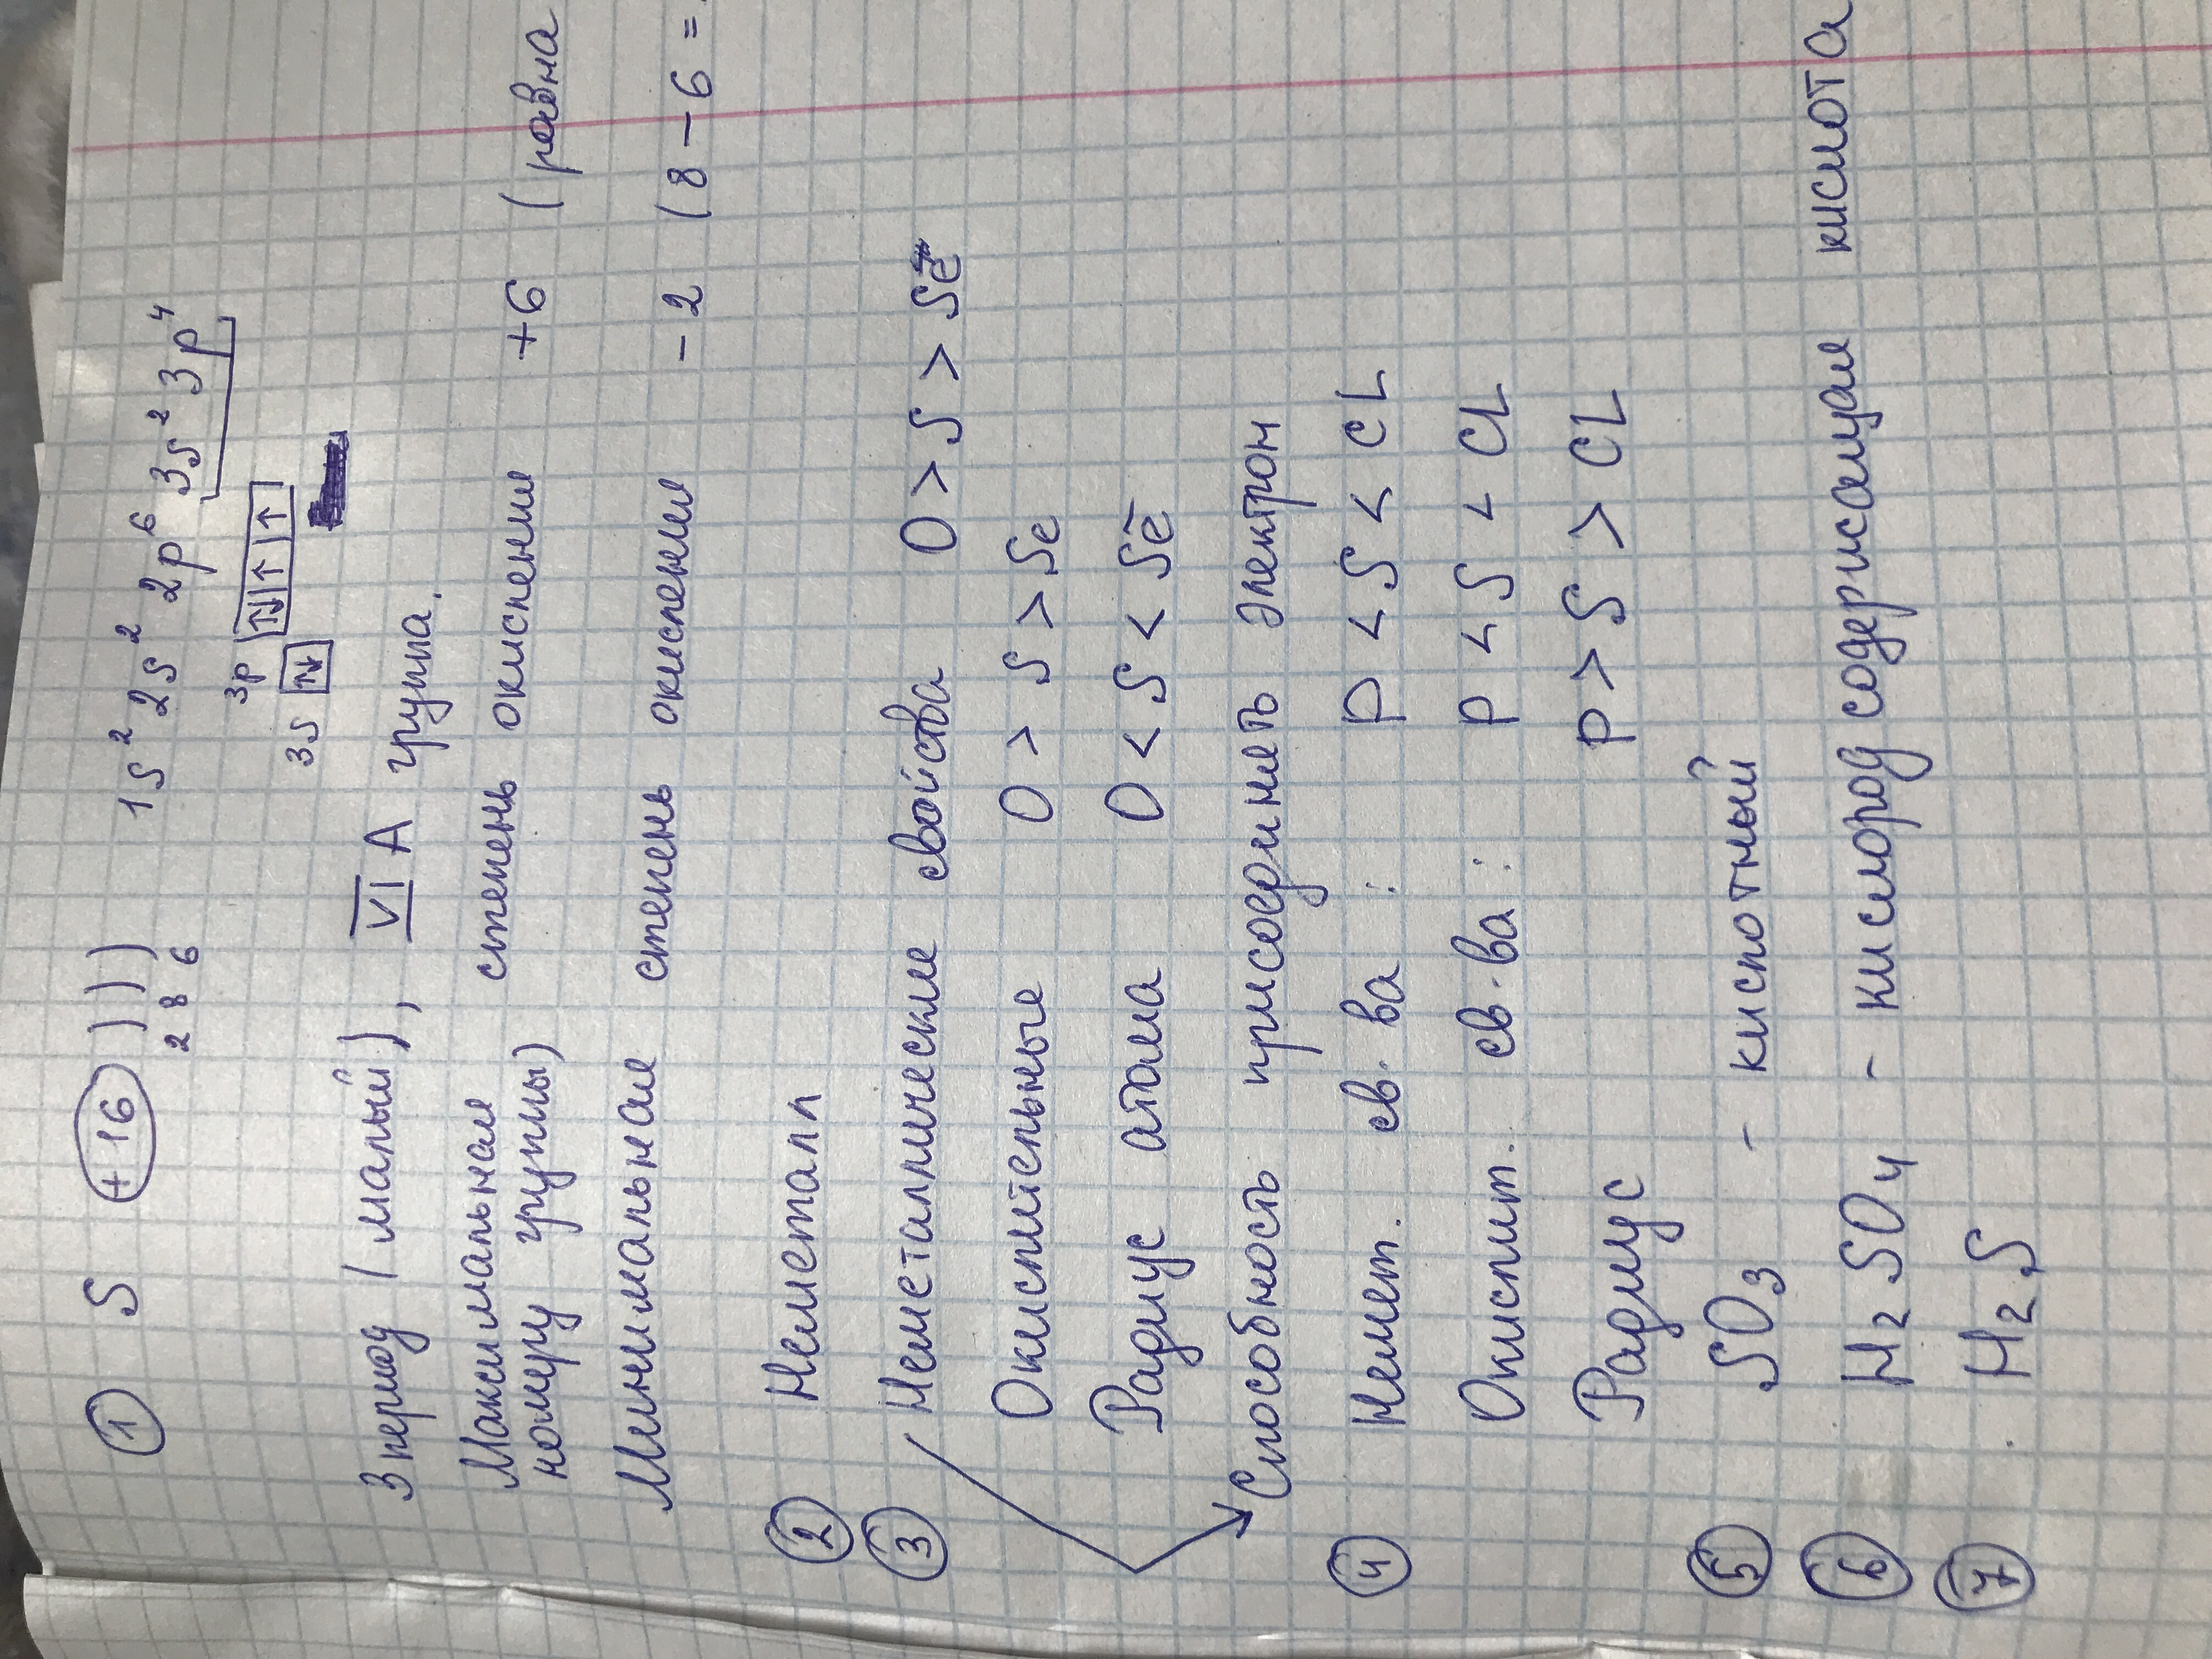 ① S +16 ) ) ) 1s² 2s² 2p⁶ 3s² 3p⁴
2 8 6
3p ↑↓ ↑ ↑
3s ↑↓
3 период (малый), VI A группа.
Максимальная степень окисления +6 (равна
номеру группы)
Минимальная степень окисления -2 (8-6=
② Неметалл
③ Неметаллические свойства O > S > Se
Окислительные O > S > Se
Радиус атома O < S < Se
Способность присоединять электрон
④ Немет. св. ва : P < S < CL
Окислит. св. ва : P < S < CL
Радиус P > S > CL
⑤ SO₃ - кислотный
⑥ H₂SO₄ - кислород содержащая кислота
⑦ H₂S